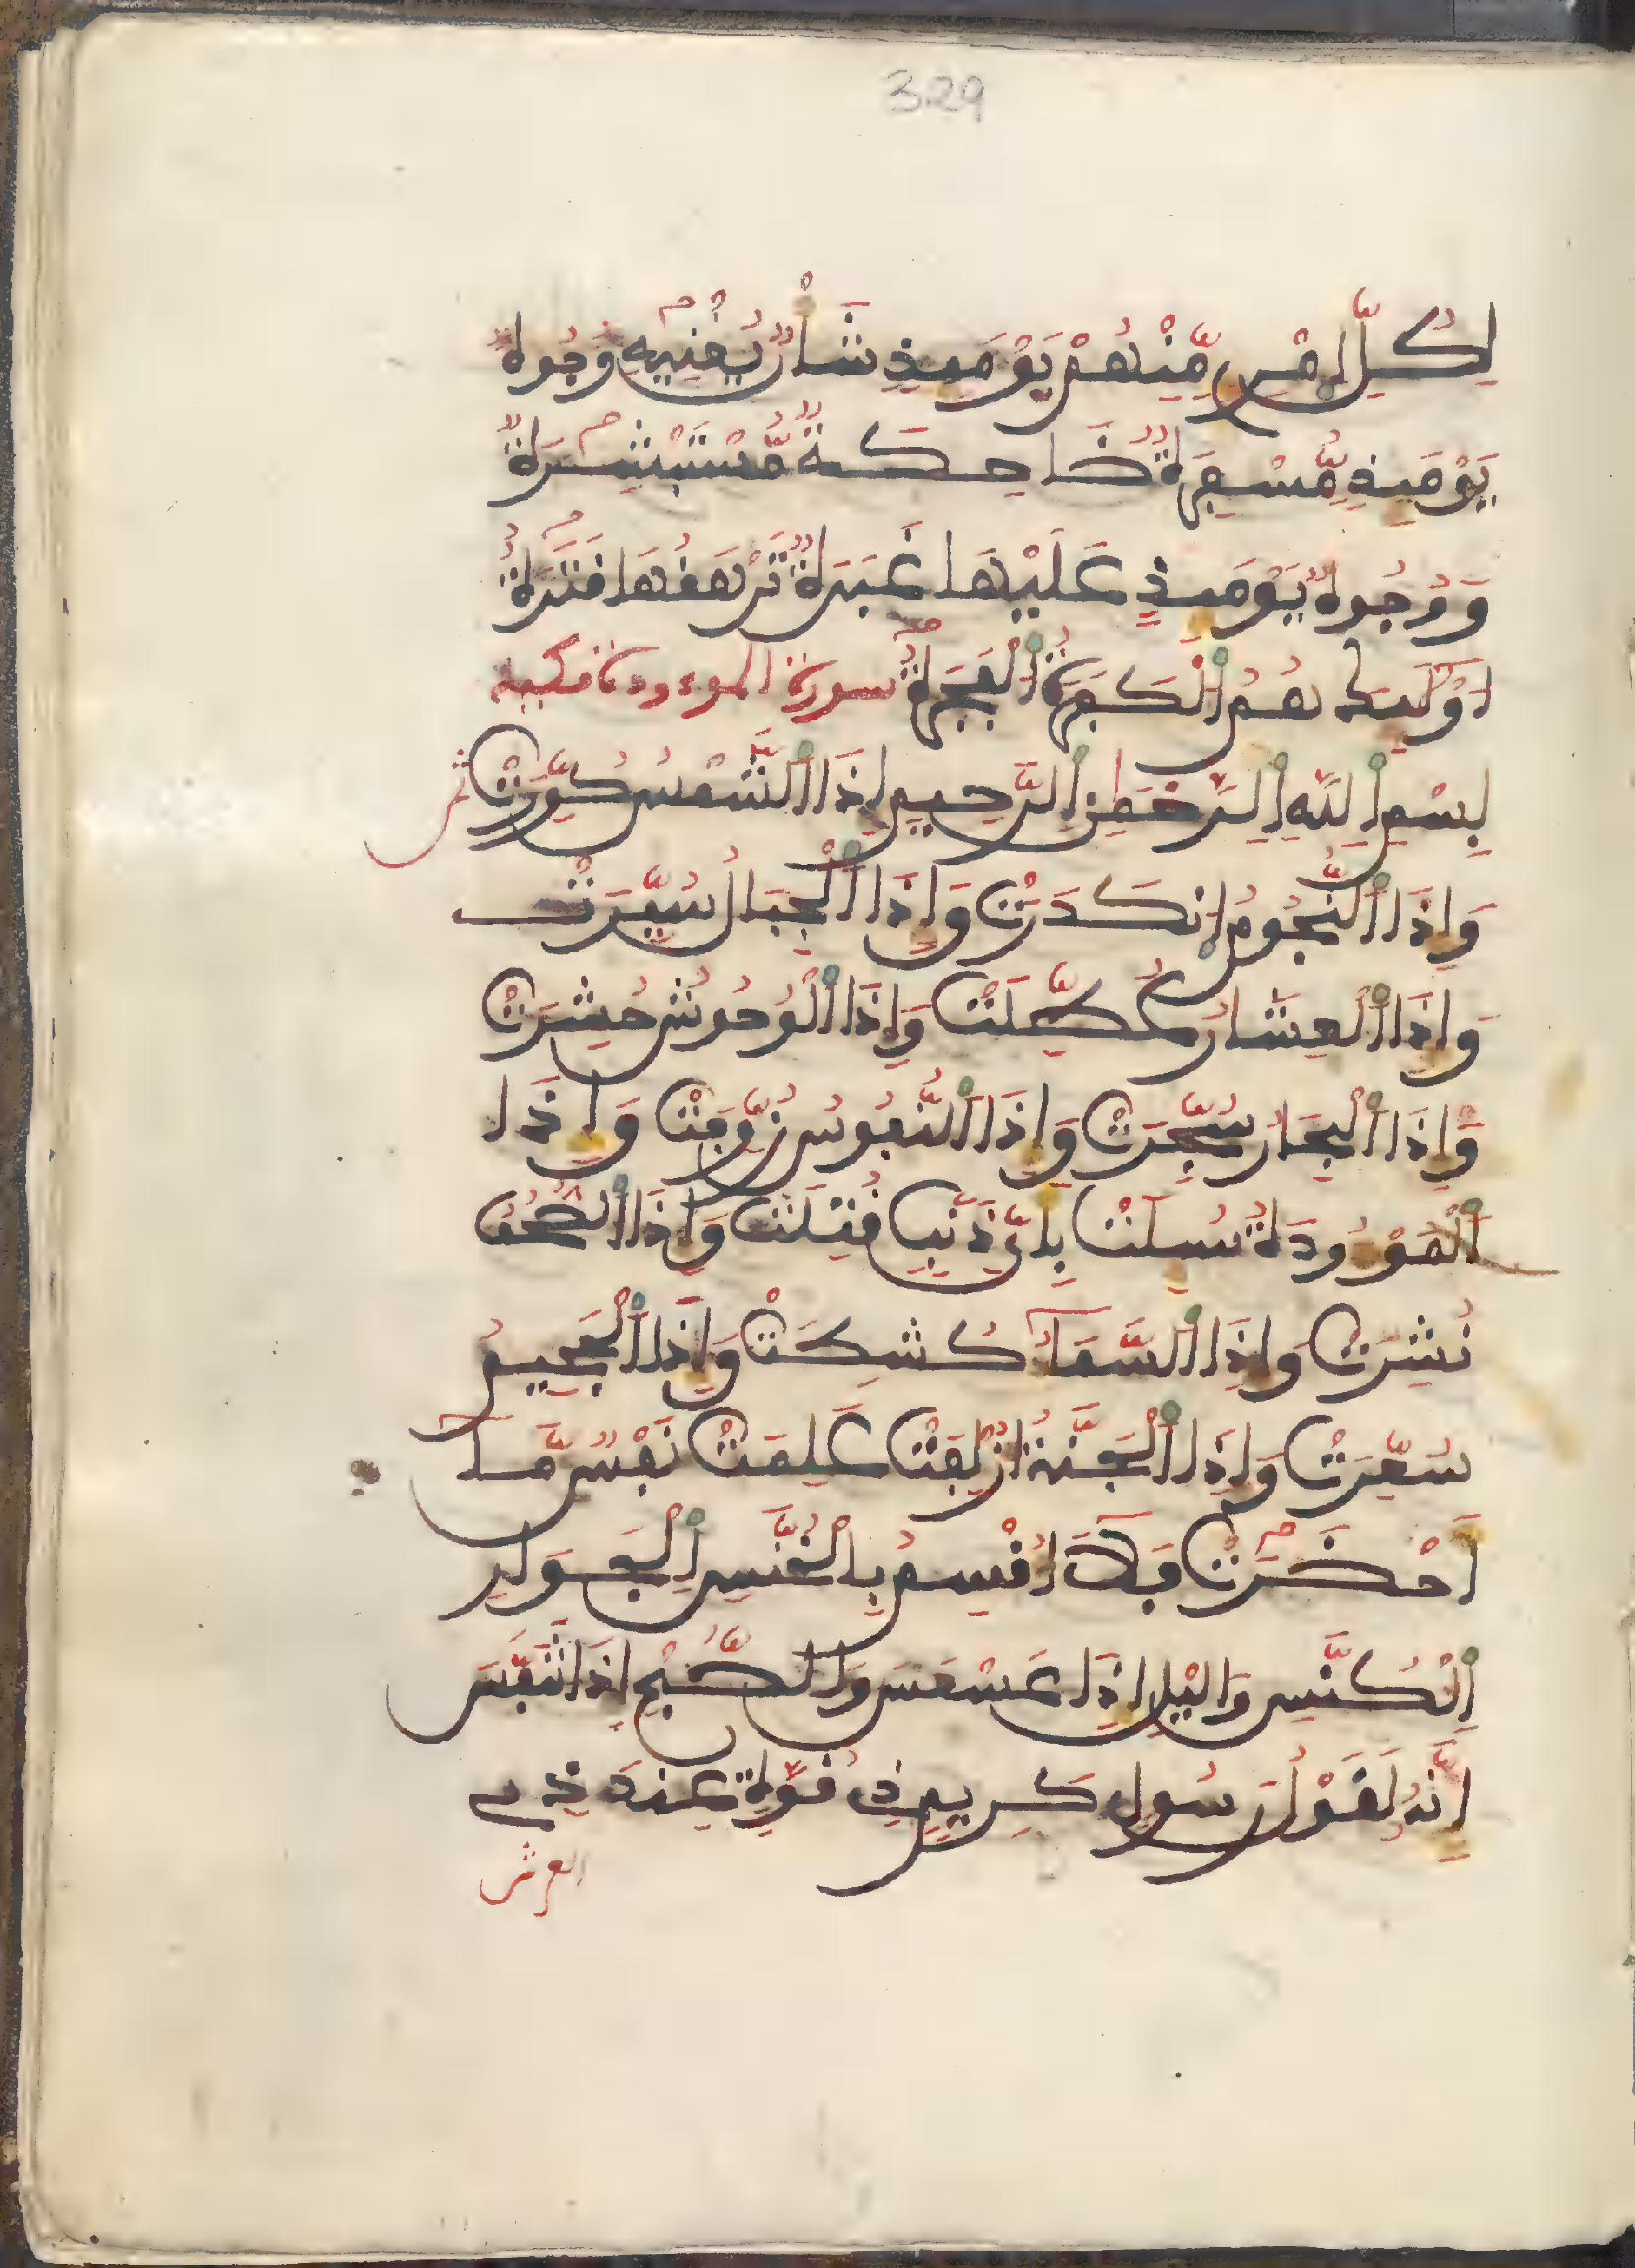 329
لِكُلِّ اِمْرِے مِّنْهُمْ يَوْمَئِذٍ شَأْنٌ يُغْنِيهِ وُجُوهٌ
يَوْمَئِذٍ مُّسْفِرَةٌ ضَاحِكَةٌ مُّسْتَبْشِرَةٌ
وَوُجُوهٌ يَوْمَئِذٍ عَلَيْهَا غَبَرَةٌ تَرْهَقُهَا قَتَرَةٌ
اُوْلَٰٓئِكَ هُمُ اَ۬لْكَفَرَةُ اُ۬لْفَجَرَةُ سورة الموءودة مكية
بِسْمِ اِ۬للَّهِ اِ۬لرَّحْمَٰنِ اِ۬لرَّحِيمِ إِذَا اَ۬لشَّمْسُ كُوِّرَتْ
وَإِذَا اَ۬لنُّجُومُ اُ۪نكَدَرَتْ وَإِذَا اَ۬لْجِبَالُ سُيِّرَتْ
وَإِذَا اَ۬لْعِشَارُ عُطِّلَتْ وَإِذَا اَ۬لْوُحُوشُ حُشِرَتْ
وَإِذَا اَ۬لْبِحَارُ سُجِّرَتْ وَإِذَا اَ۬لنُّفُوسُ زُوِّجَتْ وَإِذَا
اَ۬لْمَوْءُودَةُ سُئِلَتْ بِأَيِّ ذَنۢبٍ قُتِلَتْ وَإِذَا اَ۬لصُّحُفُ
نُشِرَتْ وَإِذَا اَ۬لسَّمَآءُ كُشِطَتْ وَإِذَا اَ۬لْجَحِيمُ
سُعِّرَتْ وَإِذَا اَ۬لْجَنَّةُ أُزْلِفَتْ عَلِمَتْ نَفْسٌ مَّآ
أَحْضَرَتْ فَلَآ أُقْسِمُ بِالْخُنَّسِ اِ۬لْجَوَارِ
اِ۬لْكُنَّسِ وَاليْلِ إِذَا عَسْعَسَ وَالصُّبْحِ إِذَا تَنَفَّسَ
إِنَّهُۥ لَقَوْلُ رَسُولٍ كَرِيمٍ ذِے قُوَّةٍ عِندَ ذِے
العرش